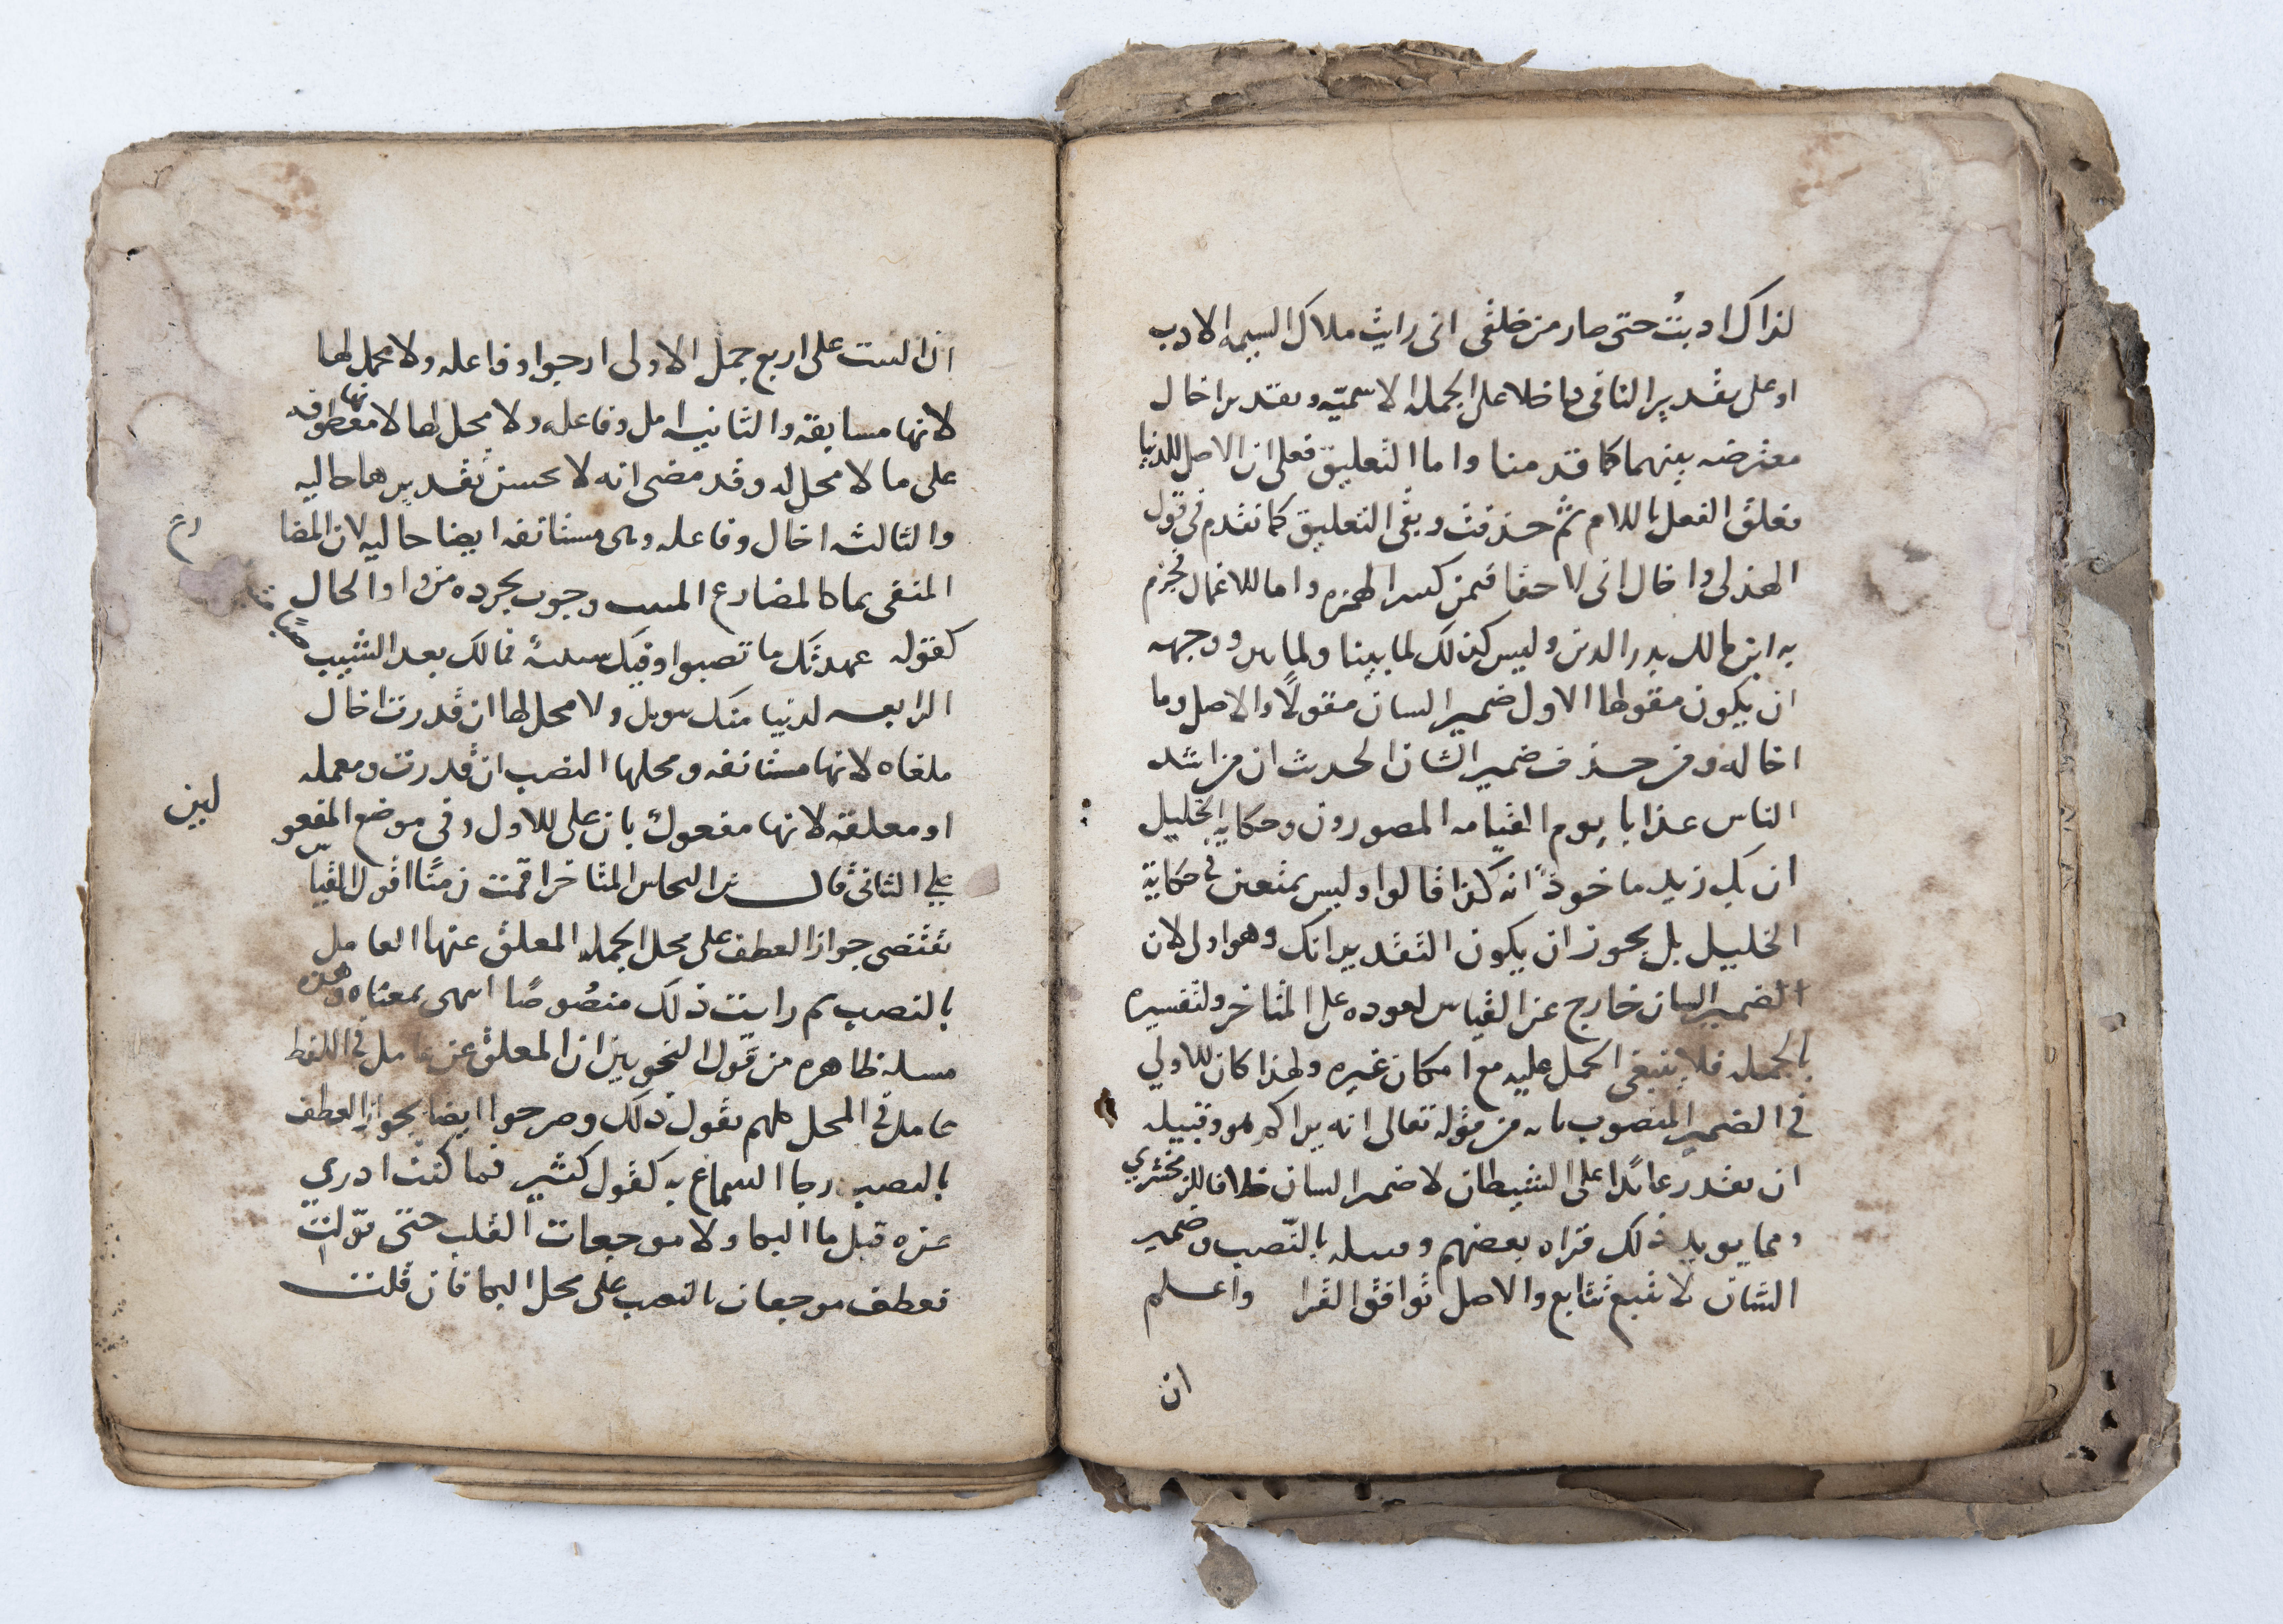 لذاك ادبتُ حتى صار من خلقى انى رايت ملاك السيمه الادب
او على تقدير النافى داخلا على الجمله الاسميّه وتقدير اخال
معترضه بينهما كما قدمنا واما التعليق فعلى ان الاصل للدنيا
فعلق الفعل باللام ثم حذفت وبقى التعليق كما تقدم فى قول
الهذلى واخال انى لاحقا فيمن كسر الهمزه واما للاغمال فجزم
به ابن مالك بدر الدين وليس كذلك لما بينا ولما ووجهه
ان يكون مفعولها الاول ضمير السان مقولاً والاصل وما
اخاله ومن حذف ضمير الشان الحديث ان من اشد
الناس عذابا يوم القيامه المصورون وحكايه الخليل
ان بك زيد ماخوذ انه كذا قالوا وليس بمتعين فى حكاية
الخليل بل يجوز ان يكون التقدير انك وهو اولى لان
الضمير السان خارج عن القياس لعوده على المتاخر ولتفسيره
بالجمله فلا ينبغى الحمل عليه مع امكان غيره ولهذا كان للاولي
فى الضمير المنصوب بان من قوله تعالى انه يراكم هو وقبيله
ان يقدر عائدا على الشيطان لا ضمير السان خلافا للزمخشري
ومما يويد ذلك قراه بعضهم وقبيله بالنّصب وضمير
الشان لا يتبع بتابع والاصل توافق القرا واعلم
ان
ان البيت على اربع جمل الاولى ارجوا وفاعله ولا محل لها
لانها مسابقه والثانيه امل وفاعله ولا محل لها لانها معطوفه
على ما لا محل له وقد مضى انه لا يحسن تقديرها حاليه
والثالثه اخال وفاعله وهى مستانفه ايضا حاليه لان المضا
رع
المنفى بما كالمضارع المثبت وجوب تجرده من واو الحال
كقوله عهدتك ما تصبوا وفيك شبيبةً فمالك بعد الشيب صبا
الرابعه لدنيا منك تنويل ولا محل لها ان قدرت اخال
ملغاه لانها مستانفه ومحلها النصب ان قدرت معمله
او معلقه لانها مفعول ثان على للاول وفى موضع المفعو
لين
على الثانى قال ابن النحاس المتاخر اقمت زمنًا اقول القياس
تقتضى جواز العطف على محل الجمله المعلق عنها العامل
بالنصب ثم رايت ذلك منصُوصًا انتهى بمعناه وهذه
مسله ظاهره من قول النحويين ان المعلق عن عامل فى اللفظ
عامل فى المحل كلهم يقول ذلك وصرحوا ايضا بجواز العطف
بالنصب وجا السماع به كقول كثير فما كنت ادري
عزه قبل ما البكا ولا موجعات القلب حتى تولت
فعطف موجعات بالنصب على محل البكا فان قلت